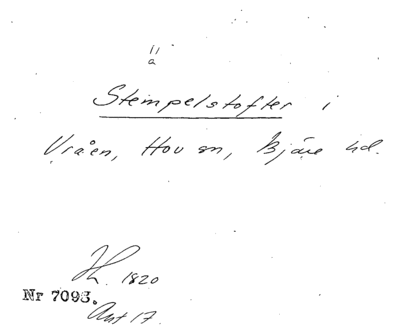 ä
Stempelstofter i
Vråen, Hov sn, Bjäre hd.
H. 1820
Nr 7093.
Ant 17.